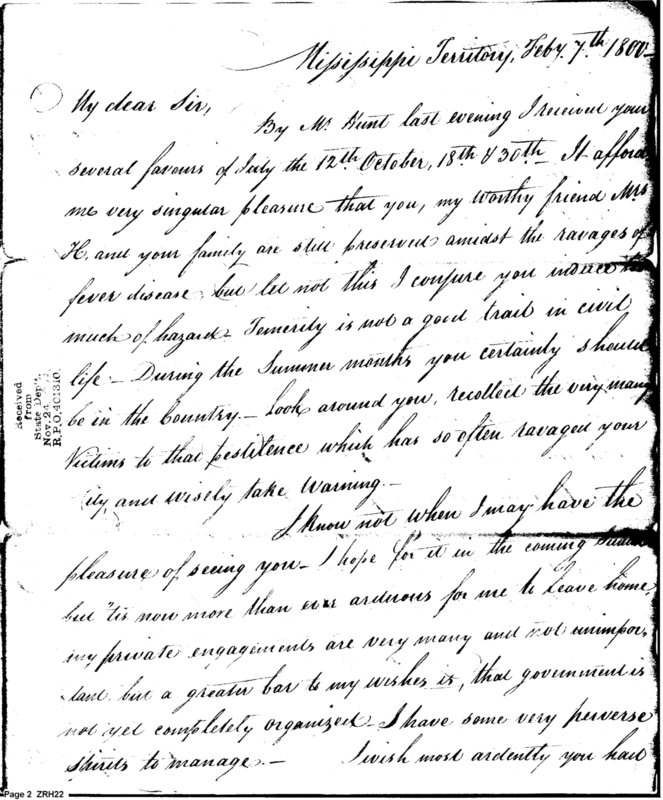 Mississippi Territory, Feby. 7th 1800
My dear Sir,
By Mr. Hunt last evening I received your
several favours of July the 12th October, 18th & 30th It afford
me very singular pleasure that you, my worthy friend Mrs
H. and your family are still preserved amidst the ravages of
fever disease, but let not this I conjure you induce
much of hazard - Temerity is not a good trait in civil
life - During the Summer months you certainly should
be in the Country. - Look around you, recollect the very many
Victims to that pestilence which has so often ravaged your
ity, and wisely take Warning. -
I know not when I may have the
pleasure of seeing you - I hope for it in the coming
but 'tis now more than ever arduous for me to Leave home,
my private engagements are very many and not unimpor
tant but a greater bar to my wishes is, that government is
not yet completely organized - I have some very perverse
spirits to manage. - I wish most ardently you had
Received
from
State Dept.
Nov. 24,
R.P.O.4C1310.
Page 2 ZRH22